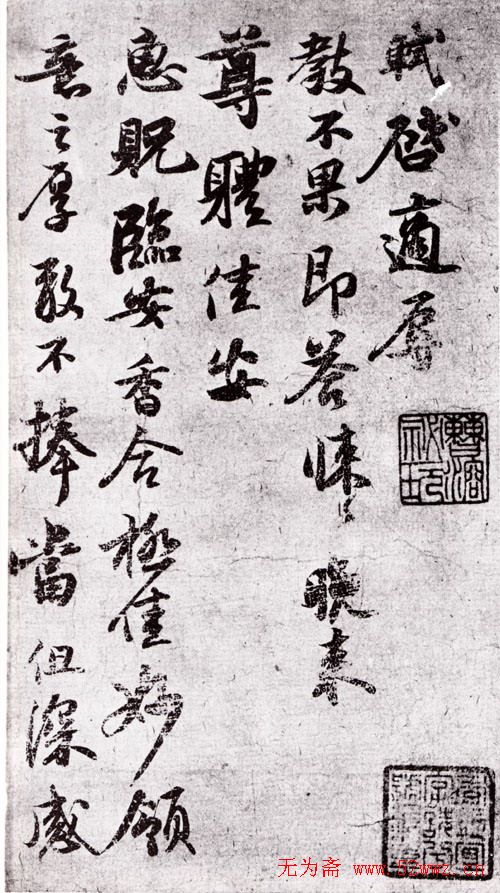 軾啓適辱
教不果即答悚〻晚來
尊體佳安
惠貺臨安香合極佳妙領
意之厚敢不捧當但深感
无为斋 www.52wwz.cn